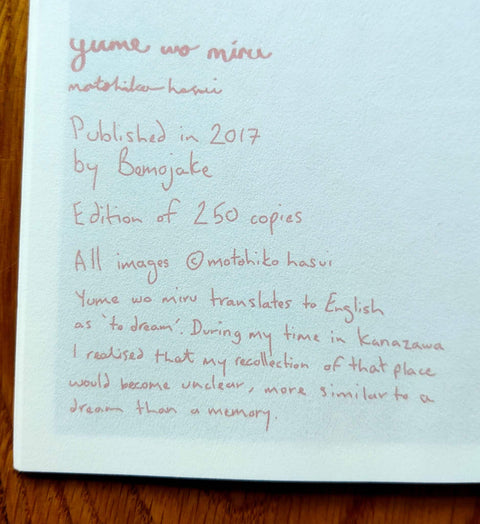 yume wo miru
motohiko hasui
Published in 2017
by Bemojake
Edition of 250 copies
All images © motohiko hasui
Yume wo miru translates to English
as 'to dream'. During my time in Kanazawa
I realised that my recollection of that place
would become unclear, more similar to a
dream than a memory.